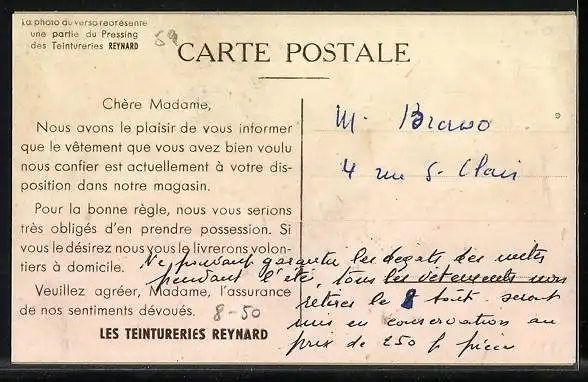 La photo du verso représente
une partie du Pressing
des Teintureries REYNARD
59
CARTE POSTALE
Chère Madame,
Nous avons le plaisir de vous informer
que le vêtement que vous avez bien voulu
nous confier est actuellement à votre dis-
position dans notre magasin.
Pour la bonne règle, nous vous serions
très obligés d'en prendre possession. Si
vous le désirez nous vous le livrerons volon-
tiers à domicile.
Veuillez agréer, Madame, l'assurance
de nos sentiments dévoués.
8-50
LES TEINTURERIES REYNARD
M. Bravo
4 rue S- Clair
Ne pouvant garantir les degats des mites
pendant l'été, tous les vêtements non
retirés le 8 Août seront
mis en conservation au
prix de 250 f pièce